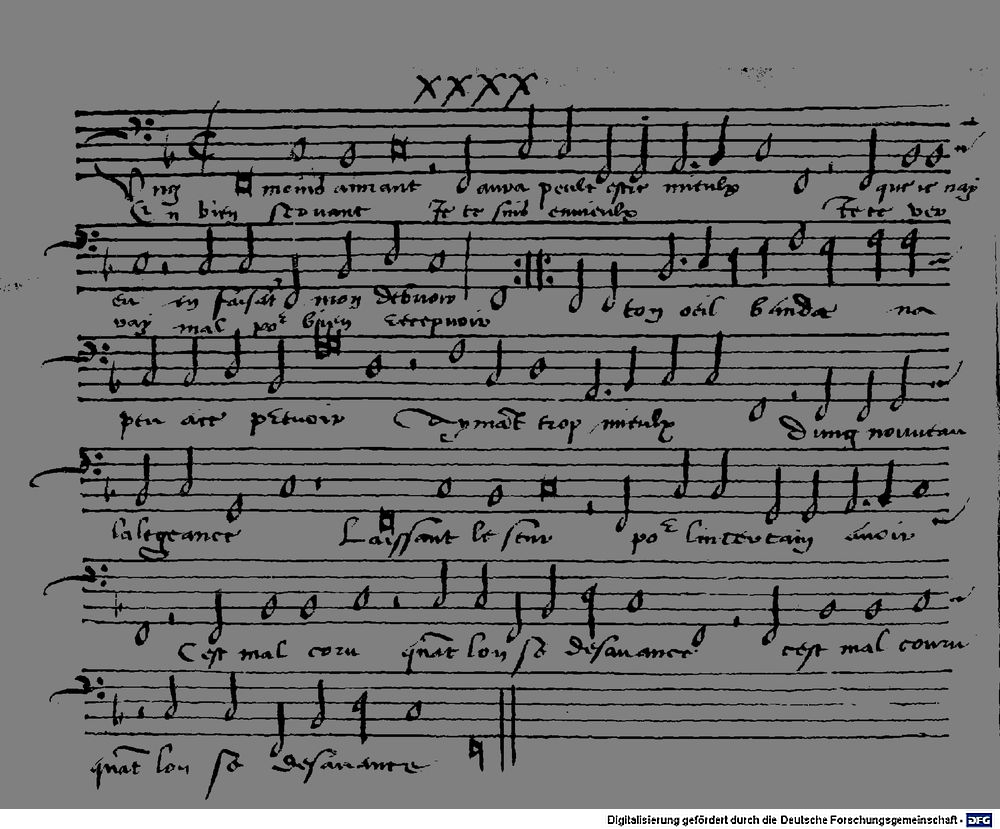 XXXX
Ung moins aimant aura peult estre mieulx que ie nay
En bien servant Je te suis ennieulx Je te ver
eu en faisat mon debvoir ton oeil bande na
ray mal por bien recepvoir
peu ace percevoir Aymat trop mieulx dung nouveau
lalegeance Laissant le seur por lincertain avoir
Cest mal coru quat lon se desavance cest mal couru
quat lon se desavance
Digitalisierung gefördert durch die Deutsche Forschungsgemeinschaft - DFG